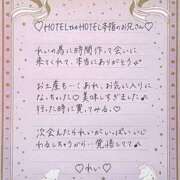 ♡HOTELtheHOTEL手指のお兄さん♡
れいの為に時間作って会いに
来てくれて、本当にありがとう
お土産も〜！あれ、お気に入りに
なっちゃった♡美味しすぎました♪
行った時に買ってみる。♡
次会えたられいがいっぱいいじ
れるしちゃうから…覚悟してて♪
♡れい♡